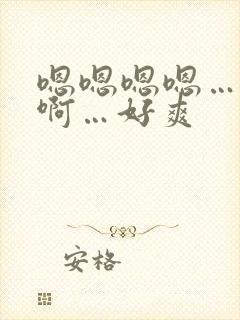 嗯嗯嗯嗯…
啊…好爽
安格